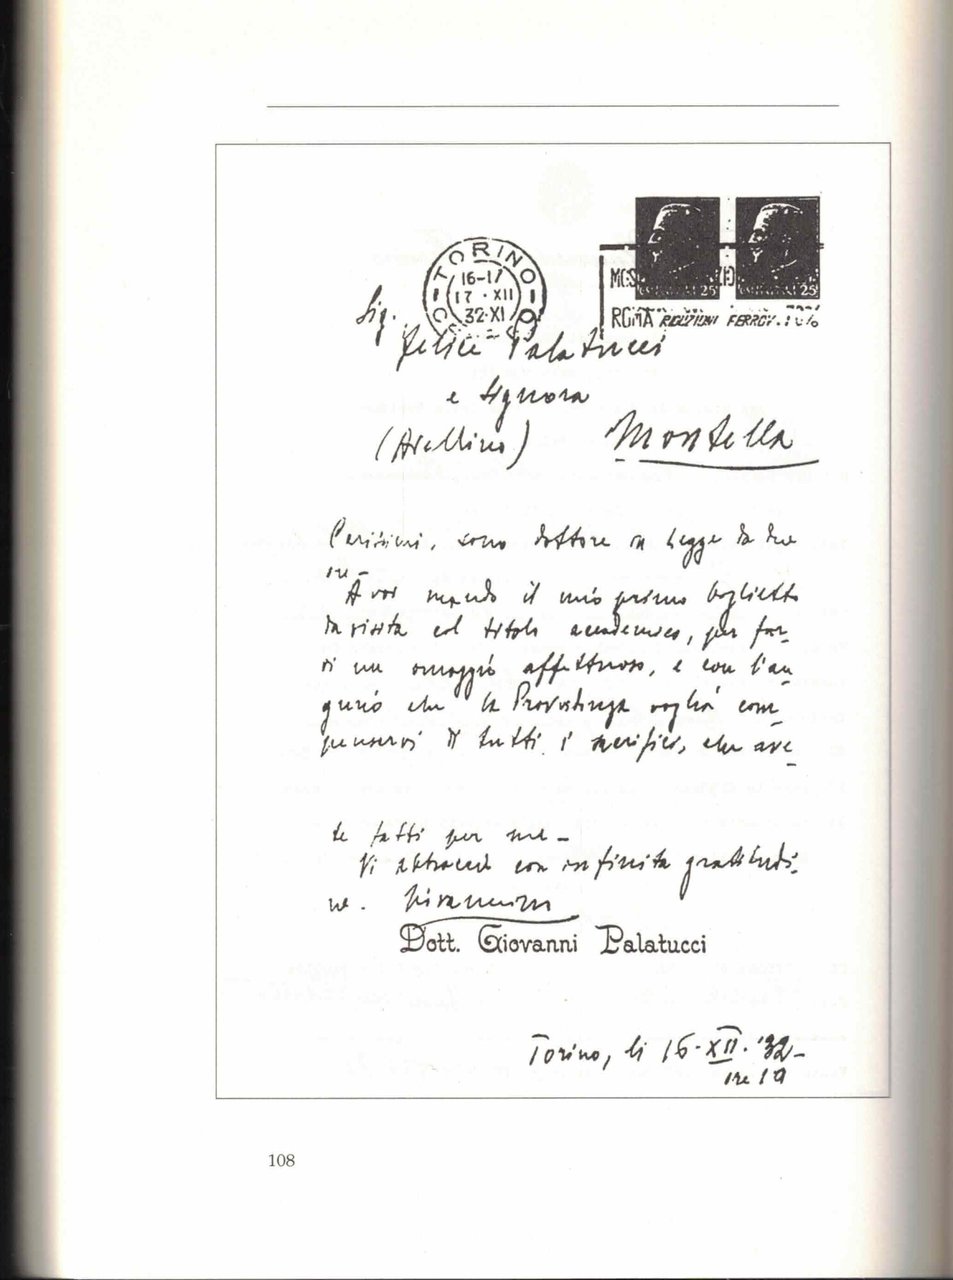 TORINO
16-17
17 · XII
32·XI
25
25
ROMA RIDUZIONI FERROV. 70%
Sig.
Felice Palatucci
e Signora
(Avellino) Montella
Carissimi, sono dottore in legge da due
ore –
A voi mando il mio primo biglietto
da visita col titolo accademico, per far-
vi un omaggio affettuoso, e con l'au-
gurio che la Provvidenza voglia com-
pensarvi di tutti i sacrifici, che ave-
te fatti per me –
Vi abbraccio con infinita gratitudi-
ne. Giovannino
Dott. Giovanni Palatucci
Torino, li 16·XII·'32–
ore 19
108